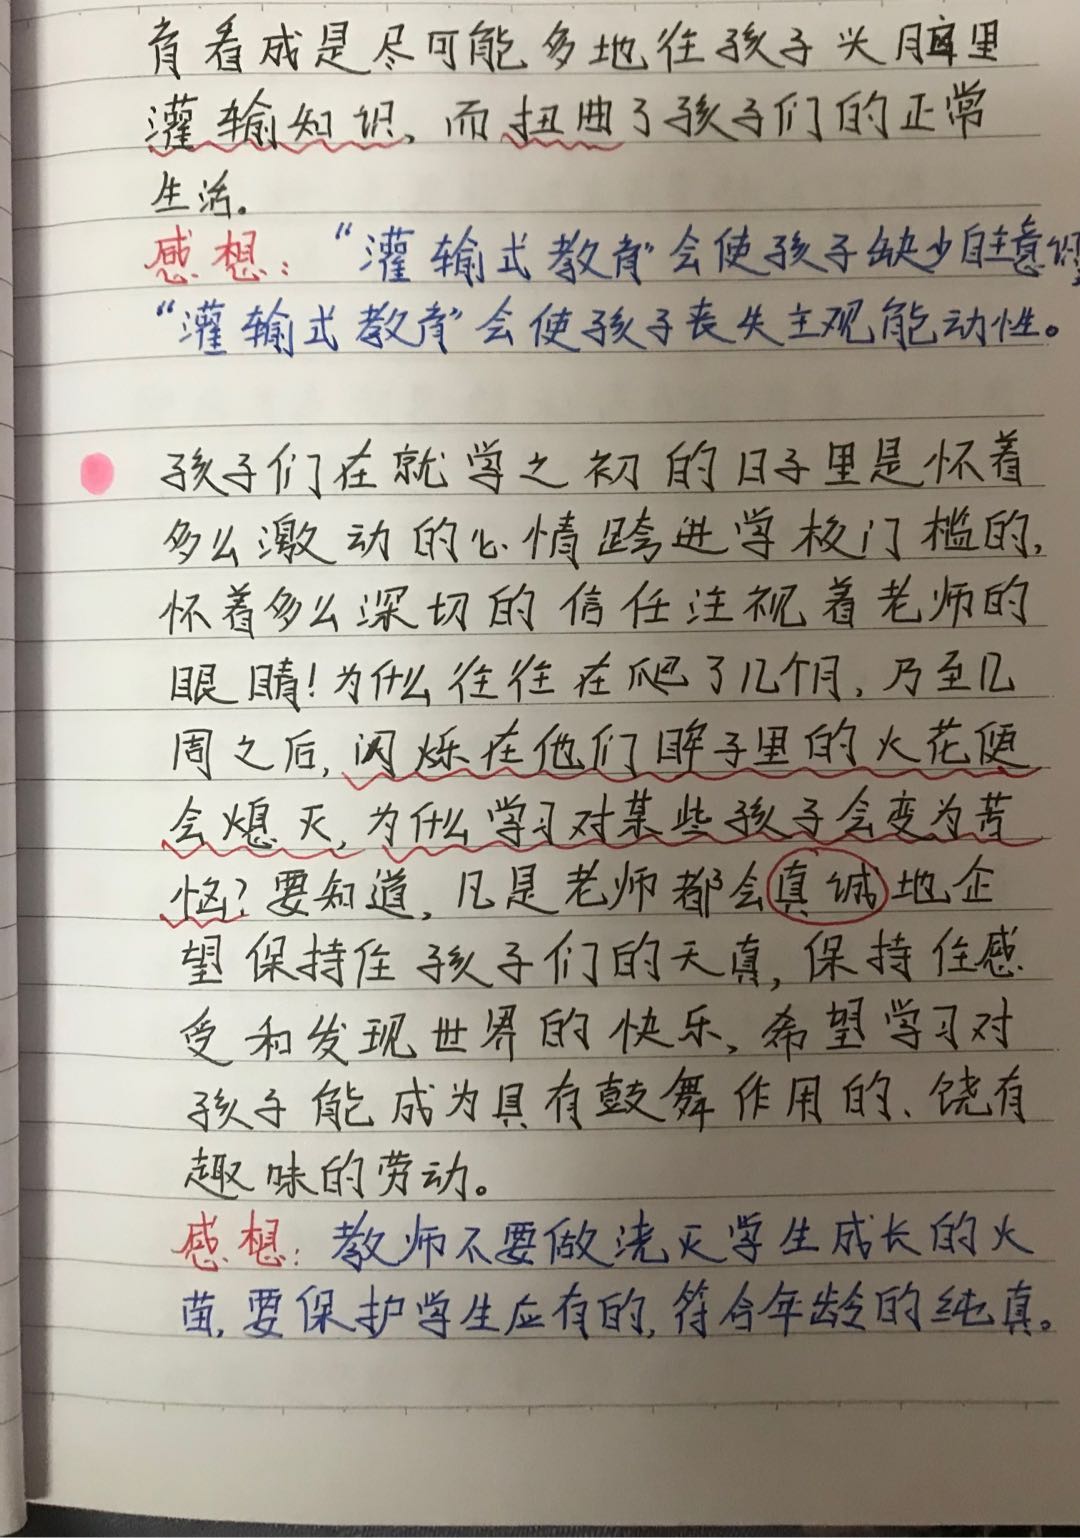 育看成是尽可能多地往孩子头脑里
灌输知识，而扭曲了孩子们的正常
生活。
感想：“灌输式教育”会使孩子缺少自主意识
“灌输式教育”会使孩子丧失主观能动性。
孩子们在就学之初的日子里是怀着
多么激动的心情跨进学校门槛的，
怀着多么深切的信任注视着老师的
眼睛！为什么往往在爬了几个月，乃至几
周之后，闪烁在他们眸子里的火花便
会熄灭，为什么学习对某些孩子会变为苦
恼？要知道，凡是老师都会真诚地企
望保持住孩子们的天真，保持住感
受和发现世界的快乐，希望学习对
孩子能成为具有鼓舞作用的、饶有
趣味的劳动。
感想：教师不要做浇灭学生成长的火
苗，要保护学生应有的，符合年龄的纯真。